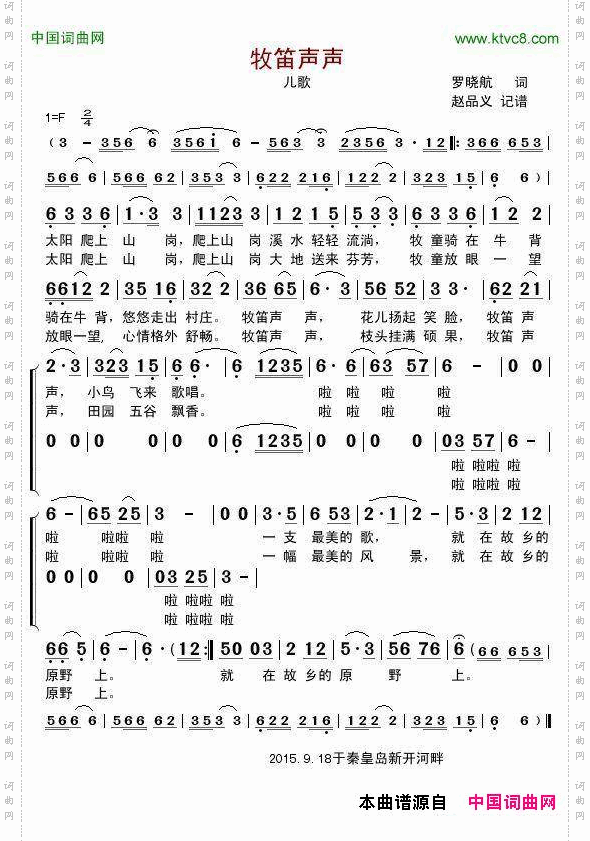 中国词曲网
www.ktvc8.com
牧笛声声
儿歌
罗晓航 词
赵品义 记谱
1=F 2/4
( 3 - | 3 5 6 6 | 3 5 6 i 6 - | 5 6 3 3 | 2 3 5 6 3 | 3 · 1 2 ‖: 3 6 6 6 5 3 |
5 6 6 6 | 1 2 2 2 | 5 6 3 3 | 6 2 2 2 1 6 | 1 2 2 2 | 4 3 3 3 | 3 2 3 1 5 | 6 6 ) |
6 3 3 6 | 1 · 3 3 | 1 1 2 3 3 | 2 1 2 1 | 5 3 3 | 6 3 3 6 | 1 2 2 |
太阳 爬上 山 岗，爬上山 岗 溪 水 轻轻 流淌， 牧 童骑 在 牛 背
太阳 爬上 山 岗，爬上山 岗 大 地 送来 芬芳， 牧 童放 眼 一 望
6 6 1 2 2 | 3 5 1 6 | 3 2 2 | 3 6 6 5 | 6 · 3 | 5 6 5 2 | 3 3 · | 6 2 2 1 |
骑在牛 背，悠悠走出 村庄。 牧笛声 声， 花儿扬起 笑 脸， 牧笛 声
放眼一望，心情格外 舒畅。 牧笛声 声， 枝头挂满 硕 果， 牧笛 声
2 · 3 | 3 2 3 1 5 | 6 6 · | 6 1 2 3 5 | 6 · 6 | 6 3 5 7 | 6 - | 0 0 |
声， 小鸟 飞来 歌唱。 啦 啦 啦 啦
声， 田园 五谷 飘香。 啦 啦 啦 啦
0 0 | 0 0 | 0 0 | 6 1 2 3 5 | 0 0 | 0 0 | 0 3 5 7 | 6 - |
啦 啦啦 啦
啦 啦啦 啦
6 - | 6 5 2 5 | 3 - | 0 0 | 3 · 5 | 6 5 3 | 2 · 1 | 2 - | 5 · 3 | 2 1 2 |
啦 啦啦 啦 一 支 最美的 歌， 就 在 故 乡的
啦 啦啦 啦 一 幅 最美的 风 景， 就 在 故 乡的
0 0 | 0 0 | 0 3 2 5 | 3 - |
啦 啦啦 啦
啦 啦啦 啦
6 6 5 | 6 - | 6 · ( 1 2 :‖ 5 0 0 3 | 2 1 2 | 3 · 5 | 5 6 7 6 | 6 ( 6 6 6 5 3 |
原野 上。 就 在 故 乡的 原 野 上。
原野 上。
5 6 6 6 | 1 2 2 2 | 5 6 3 3 | 6 2 2 2 1 6 | 1 2 2 2 | 4 3 3 3 | 3 2 3 1 5 | 6 6 0 ) ‖
2015. 9. 18于秦皇岛新开河畔
本曲谱源自 中国词曲网